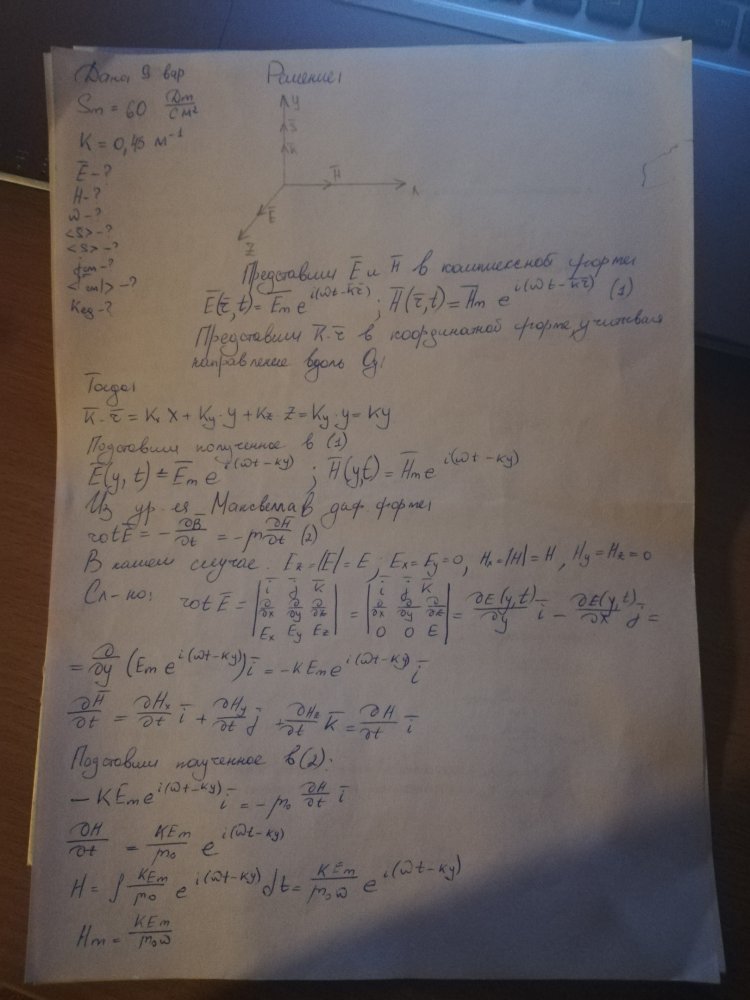 Дано 9 вар
Решение:
Sm = 60 Вт/см²
K = 0,45 м⁻¹
Ē - ?
H̄ - ?
ω - ?
<S> - ?
<S> - ?
jсм - ?
<|jсм|> - ?
Kед - ?
y
S̄
K̄
H̄
x
Ē
Z
Представим Ē и H̄ в комплексной форме:
Ē(r̄,t) = Ēm e^{i(ωt-k̄r̄)} ; H̄(r̄,t) = H̄m e^{i(ωt-k̄r̄)} (1)
Представим K̄·r̄ в координатной форме, учитывая
направление вдоль Oy:
Тогда:
K̄·r̄ = Kx X + Ky·y + Kz·Z = Ky·y = Ky
Подставим полученное в (1)
Ē(y,t) = Ēm e^{i(ωt-ky)} ; H̄(y,t) = H̄m e^{i(ωt-ky)}
Из ур-ея Максвелла в диф. форме:
rot Ē = -∂B̄/∂t = -μ ∂H̄/∂t (2)
В нашем случае: Ez = |Ē| = E ; Ex = Ey = 0, Hx = |H| = H, Hy = Hz = 0
Сл-но: rot Ē = | ī j̄ K̄ ; ∂/∂x ∂/∂y ∂/∂z ; Ex Ey Ez | = | ī j̄ K̄ ; ∂/∂x ∂/∂y ∂/∂z ; 0 0 E | = ∂E(y,t)/∂y ī - ∂E(y,t)/∂x j̄ =
= ∂/∂y (Em e^{i(ωt-ky)}) ī = -kEm e^{i(ωt-ky)} ī
∂H̄/∂t = ∂Hx/∂t ī + ∂Hy/∂t j̄ + ∂Hz/∂t K̄ = ∂H/∂t ī
Подставим полученное в (2):
-KEm e^{i(ωt-ky)} ī = -μ₀ ∂H/∂t ī
∂H/∂t = KEm/μ₀ e^{i(ωt-ky)}
H = ∫ KEm/μ₀ e^{i(ωt-ky)} dt = KEm/μ₀ω e^{i(ωt-ky)}
Hm = KEm/μ₀ω